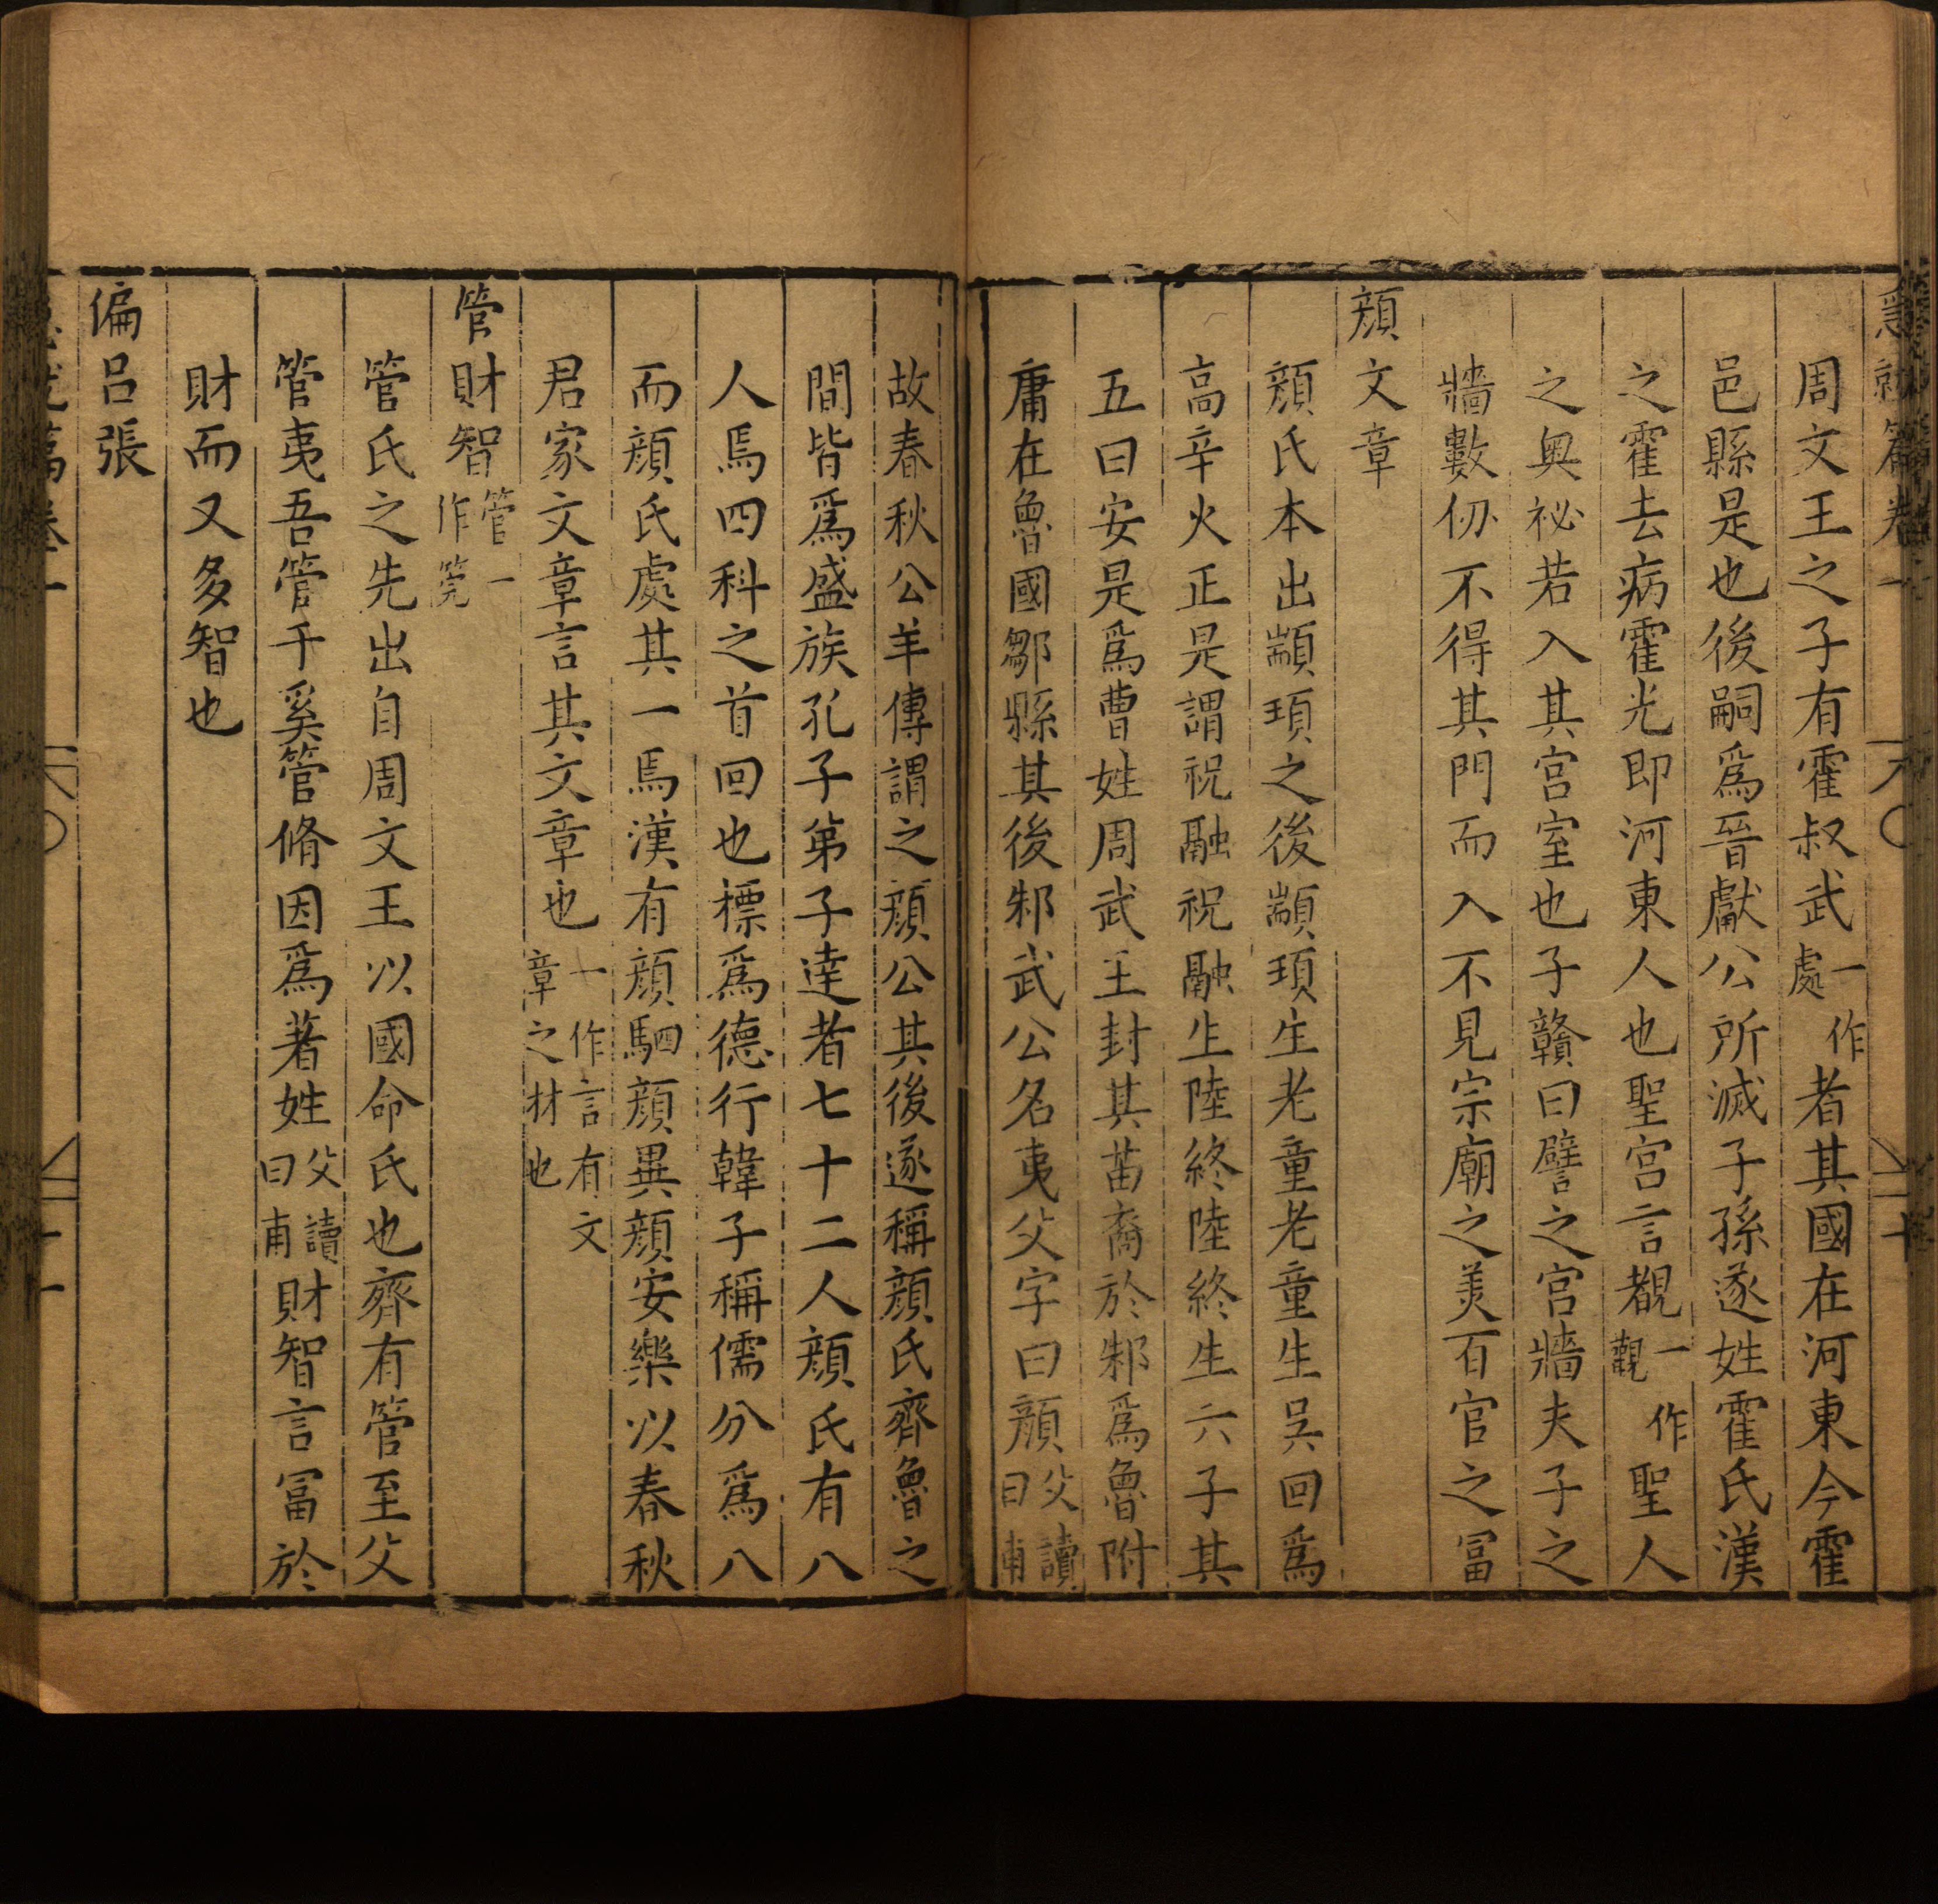 急就篇卷一
十
周文王之子有霍叔武一作處者其國在河東今霍
邑縣是也後嗣爲晉獻公所滅子孫遂姓霍氏漢
之霍去病霍光即河東人也聖宮言覩一作觀聖人
之奧祕若入其宮室也子贛曰譬之宮牆夫子之
牆數仞不得其門而入不見宗廟之美百官之冨
顔文章
顔氏本出顓頊之後顓頊生老童老童生吳回爲
高辛火正是謂祝融祝融生陸終陸終生六子其
五曰安是爲曹姓周武王封其苗裔於邾爲魯附
庸在魯國鄒縣其後邾武公名夷父字曰顔父讀曰甫
故春秋公羊傳謂之顔公其後遂稱顔氏齊魯之
間皆爲盛族孔子弟子達者七十二人顔氏有八
人焉四科之首回也標爲德行韓子稱儒分爲八
而顔氏處其一焉漢有顔駟顔異顔安樂以春秋
君家文章言其文章也一作言有文章之材也
管財智管一作筦
管氏之先出自周文王以國命氏也齊有管至父
管夷吾管于奚管脩因爲著姓父讀曰甫財智言冨於
財而又多智也
偏呂張